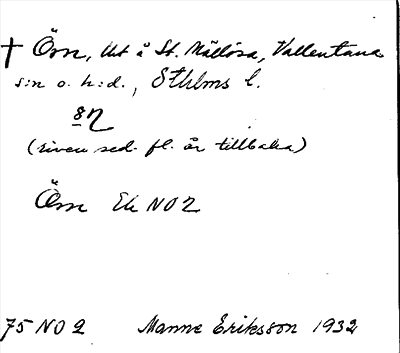 † Örn, lht å St. Mällösa, Vallentuna
s:n o. h:d., Sthlms l.
8η
(riven sed. fl. år tillbaka)
Örn Ek NO 2
75 NO 2 Manne Eriksson 1932